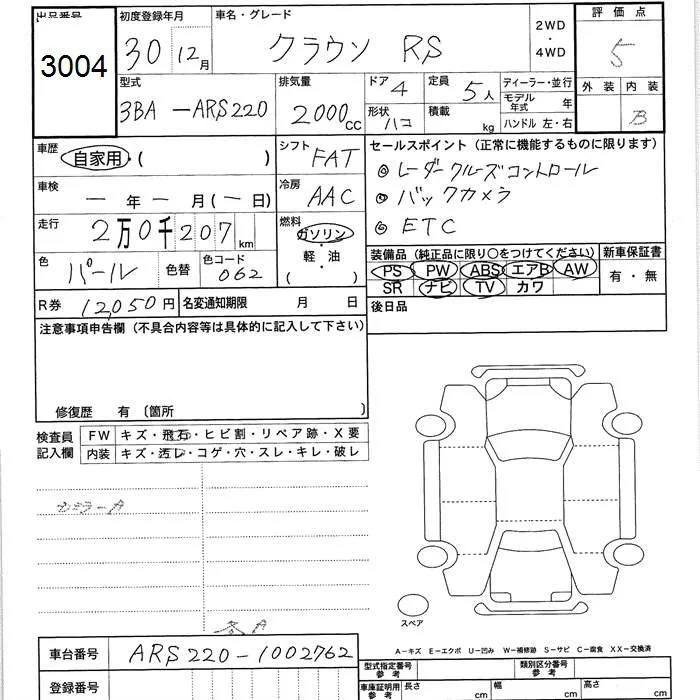 出品番号 初度登録年月 車名・グレード 2WD・4WD 評価点
3004 30 12月 クラウン RS 5
型式 排気量 ドア 4 定員 5人 ディーラー・並行 外装 内装
3BA-ARS220 2000cc 形状 ハコ 積載 kg モデル年式 年 B
ハンドル 左・右
車歴 自家用・( ) シフト FAT セールスポイント(正常に機能するものに限ります)
◎ レーダークルーズコントロール
車検 ー年ー月(ー日) 冷房 AAC ◎ バックカメラ
走行 2万0千207km 燃料 ガソリン・軽・油 ( ) ◎ ETC
色 パール 色替 色コード 062
装備品(純正品に限り○をつけてください) 新車保証書
PS PW ABS エアB AW 有・無
SR ナビ TV カワ
R券 12,050円 名変通知期限 月 日 後日品
注意事項申告欄(不具合内容等は具体的に記入して下さい)
修復歴 有 〔箇所 〕
検査員記入欄 FW キズ・飛石・ヒビ割・リペア跡・X要
内装 キズ・汚レ・コゲ・穴・スレ・キレ・破レ
スペア
A-キズ E-エクボ U-凹み W-補修跡 S-サビ C-腐食 XX-交換済
車台番号 ARS220-1002762 型式指定番号 参考 類別区分番号 参考
登録番号 車庫証明用 参考 長さ cm 幅 cm 高さ cm